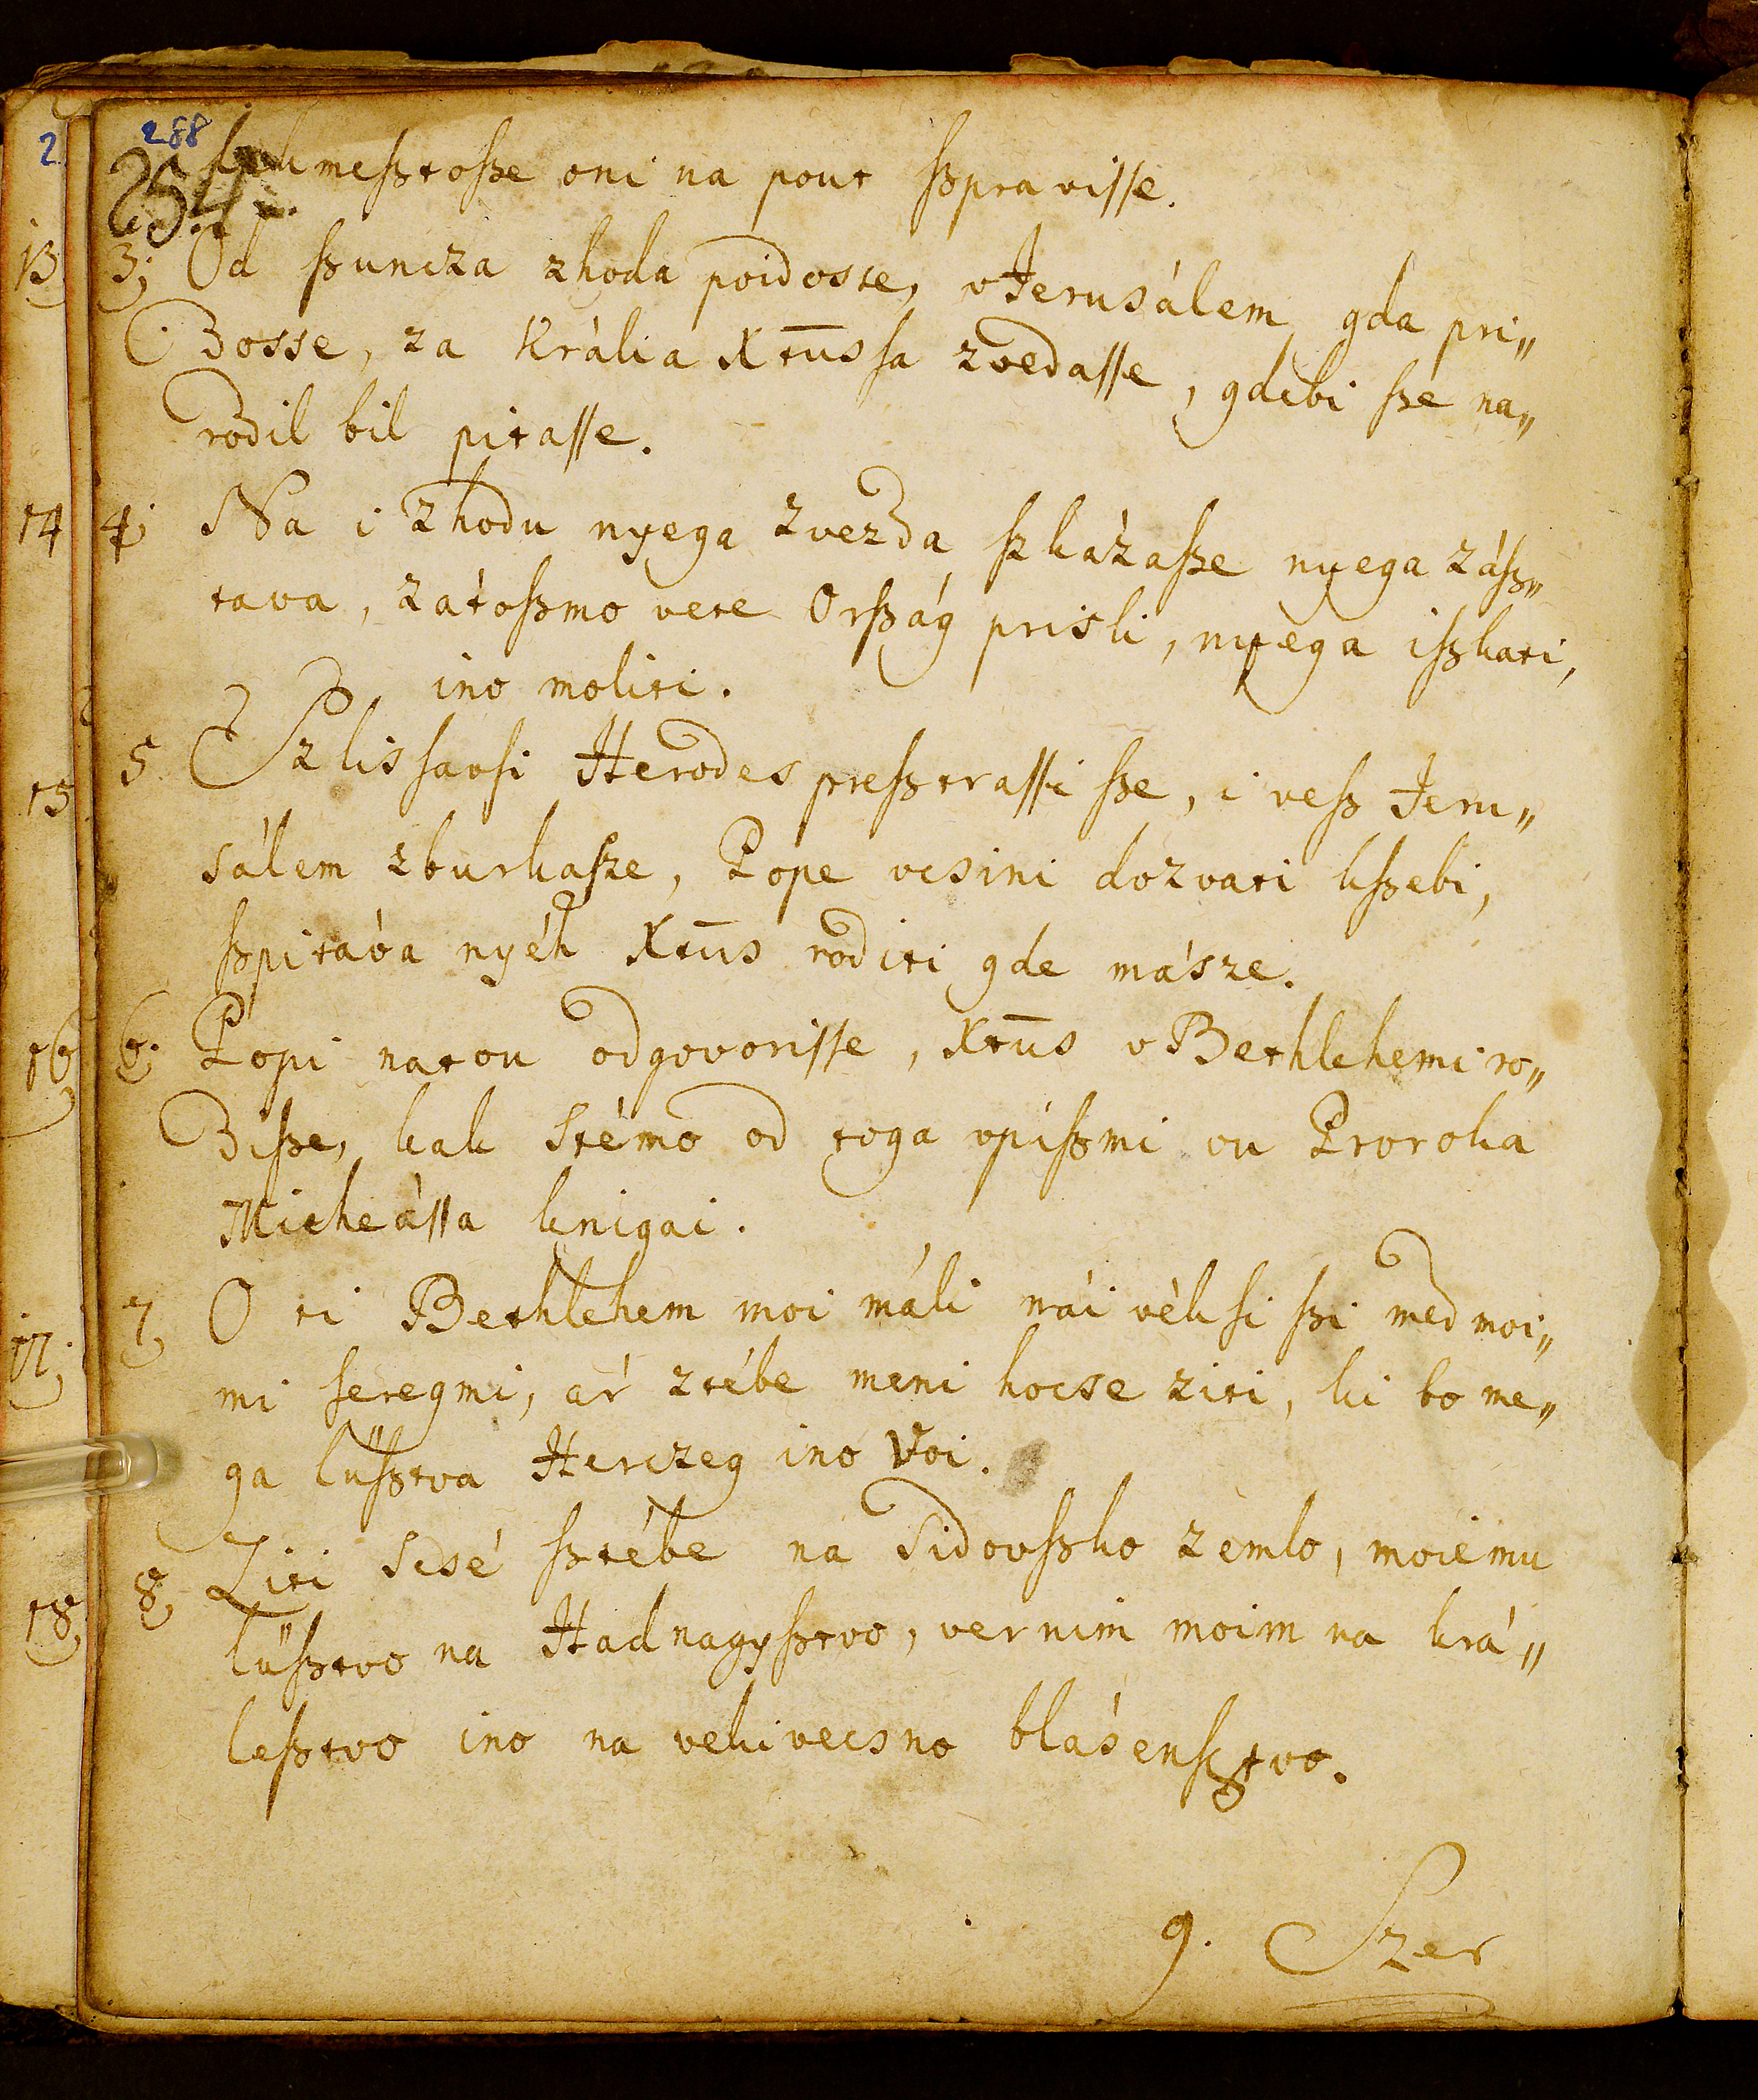 288
254.
meſztoſze oni na pout ſzpraviſſe.
3; Od ſzuncza zhoda poidosse, v Jerusálem gda pri„
Bosse, za Krália Xtūsſa zvedaſſe, gdebi ſzé na„
rodil bil pitaſſe.
4; Na i zhodu nyega zvezda ſzkázaſze nyega záſz„
tava, zátoſzmo vete Orſzág prisli, nyega iſzkati,
ino moliti.
5 Szlisſavſi Herodes preſztraſſi ſze, i veſz Jeru„
sálem zburkaſze, Pope vcsini dozvati kſzebi,
ſzpitáva nyéh Xtūs roditi gde másze.
6. Popi natou odgovoriſſe, Xtūs v Bethlehemi ro„
diſze, kak stémo od toga vpiſzmi ou Proroka
Micheáſſa knigai.
7 O ti Bethlehem moi máli nái vékſi ſzi med moi„
mi ſeregmi, ár ztébe meni hocse ziti, ki bo me„
ga lüſztva Herczeg ino Voi.
8 Ziti scsé ſztébe na Sidovſzko zemlo, moiemu
lüſztvo na Hadnagyſztvo, vernim moim na krá„
leſztvo ino na vekivecsno blásenſztvo.
9. Szer
2
13
14
15
16
17.
18